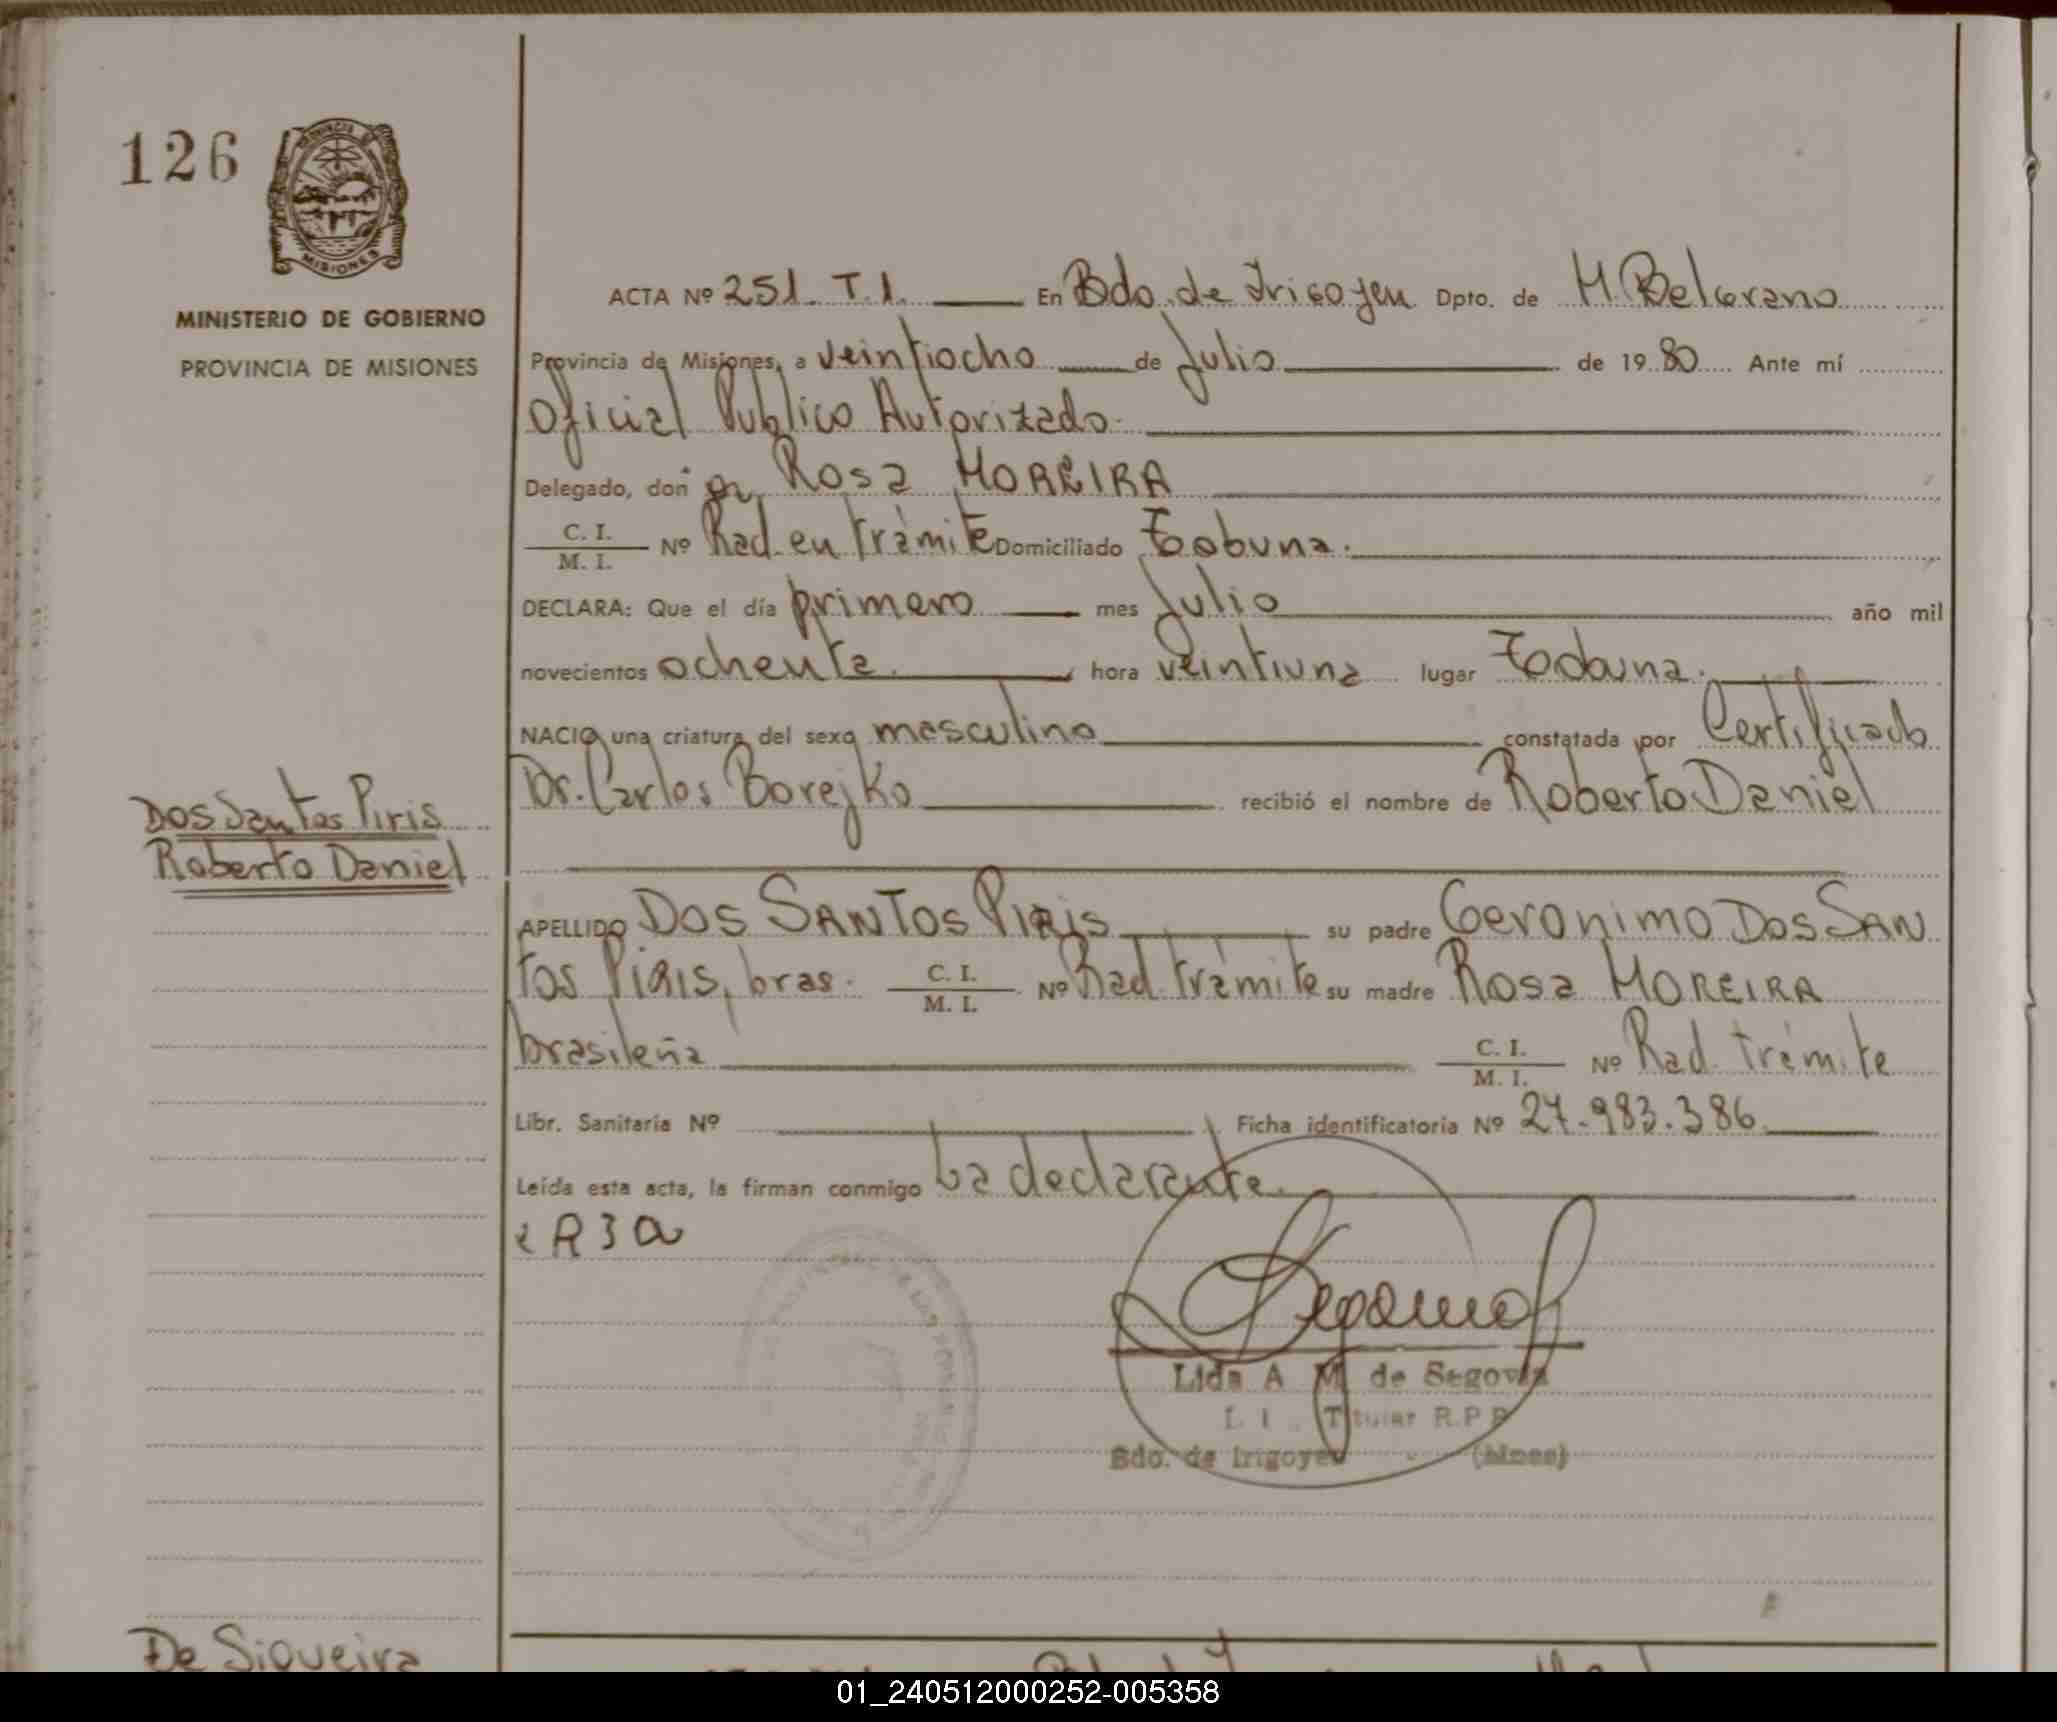 126
PROVINCIA DE
MISIONES
MINISTERIO DE GOBIERNO
PROVINCIA DE MISIONES
ACTA Nº 251. T.1. En Bdo. de Irigoyen Dpto. de M. Belgrano
Provincia de Misiones, a veintiocho de Julio de 1980 Ante mí
Oficial Publico Autorizado.
Delegado, don Rosa MOREIRA
C. I.
M. I. Nº Rad. en trámite Domiciliado Tobuna.
DECLARA: Que el día primero mes Julio año mil
novecientos ochenta. hora veintiuna lugar Tobuna.
NACIO una criatura del sexo masculino constatada por Certificado
Dr. Carlos Borejko recibió el nombre de Roberto Daniel
Dos Santos Piris
Roberto Daniel
APELLIDO DOS SANTOS PIRIS su padre Geronimo DOS SAN
TOS PIRIS, bras. C. I. M. I. Nº Rad. trámite su madre Rosa MOREIRA
brasileña C. I. M. I. Nº Rad. trámite
Libr. Sanitaria Nº Ficha identificatoria Nº 27.983.386
Leída esta acta, la firman conmigo La declarante.
Lida A M de Segovia
Titular R.P.P
Bdo. de Irigoyen (Mnes)
De Siqueira
01_240512000252-005358